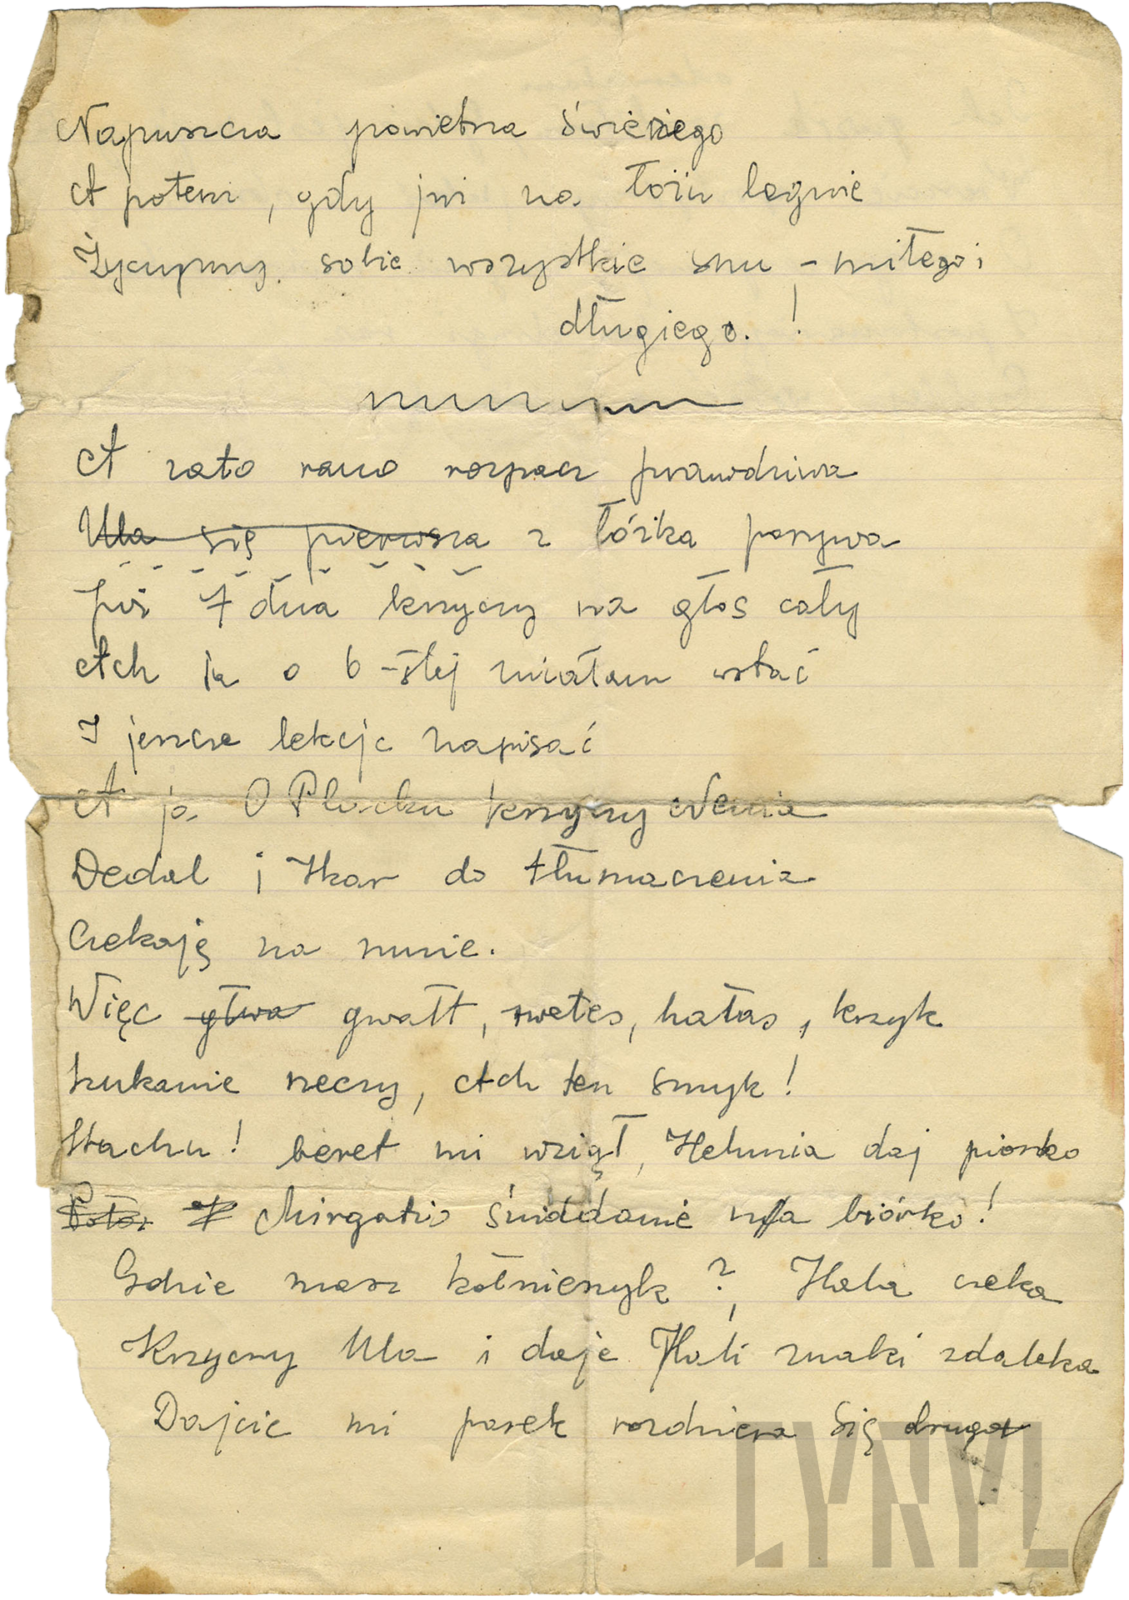 Napuszcza powietrza świeżego
A potem, gdy już na łożu legnie
Życzymy sobie wszystkie snu – miłego i
długiego. !
A zato rano rozpacz prawdziwa
Ula się pierwsza z łóżka porywa
Już 7 dma krzyczy na głos cały
Ach ja o 6-stej miałam wstać
I jeszcze lekcje napisać
A ja O Placku krzyczy Nenia
Dedal i Ikar do tłumaczenia
Czekają na mnie.
Więc gwałt, rwetes, hałas, krzyk
szukanie rzeczy, Ach ten smyk!
Stachu! beret mi wziął, Helunia daj piórko
Margatio śniadanie na biórko!
Gdzie masz kołnierzyk?, Hala czeka
Krzyczy Ula i daje Hali znaki zdaleka
Dajcie mi pasek rozdziera się druga
LYRYL